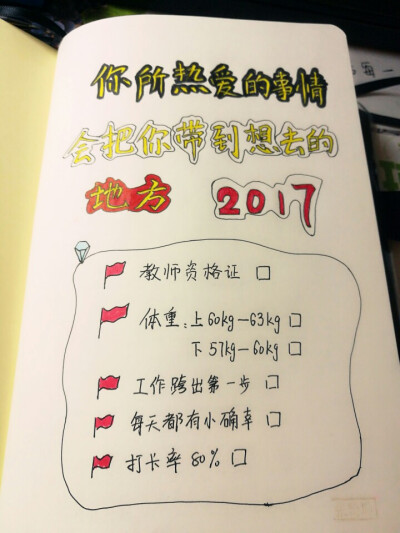 你所热爱的事情
会把你带到想去的
地方 2017
教师资格证 □
体重:上60kg—63kg □
下57kg—60kg □
工作跨出第一步 □
每天都有小确幸 □
打卡率80% □